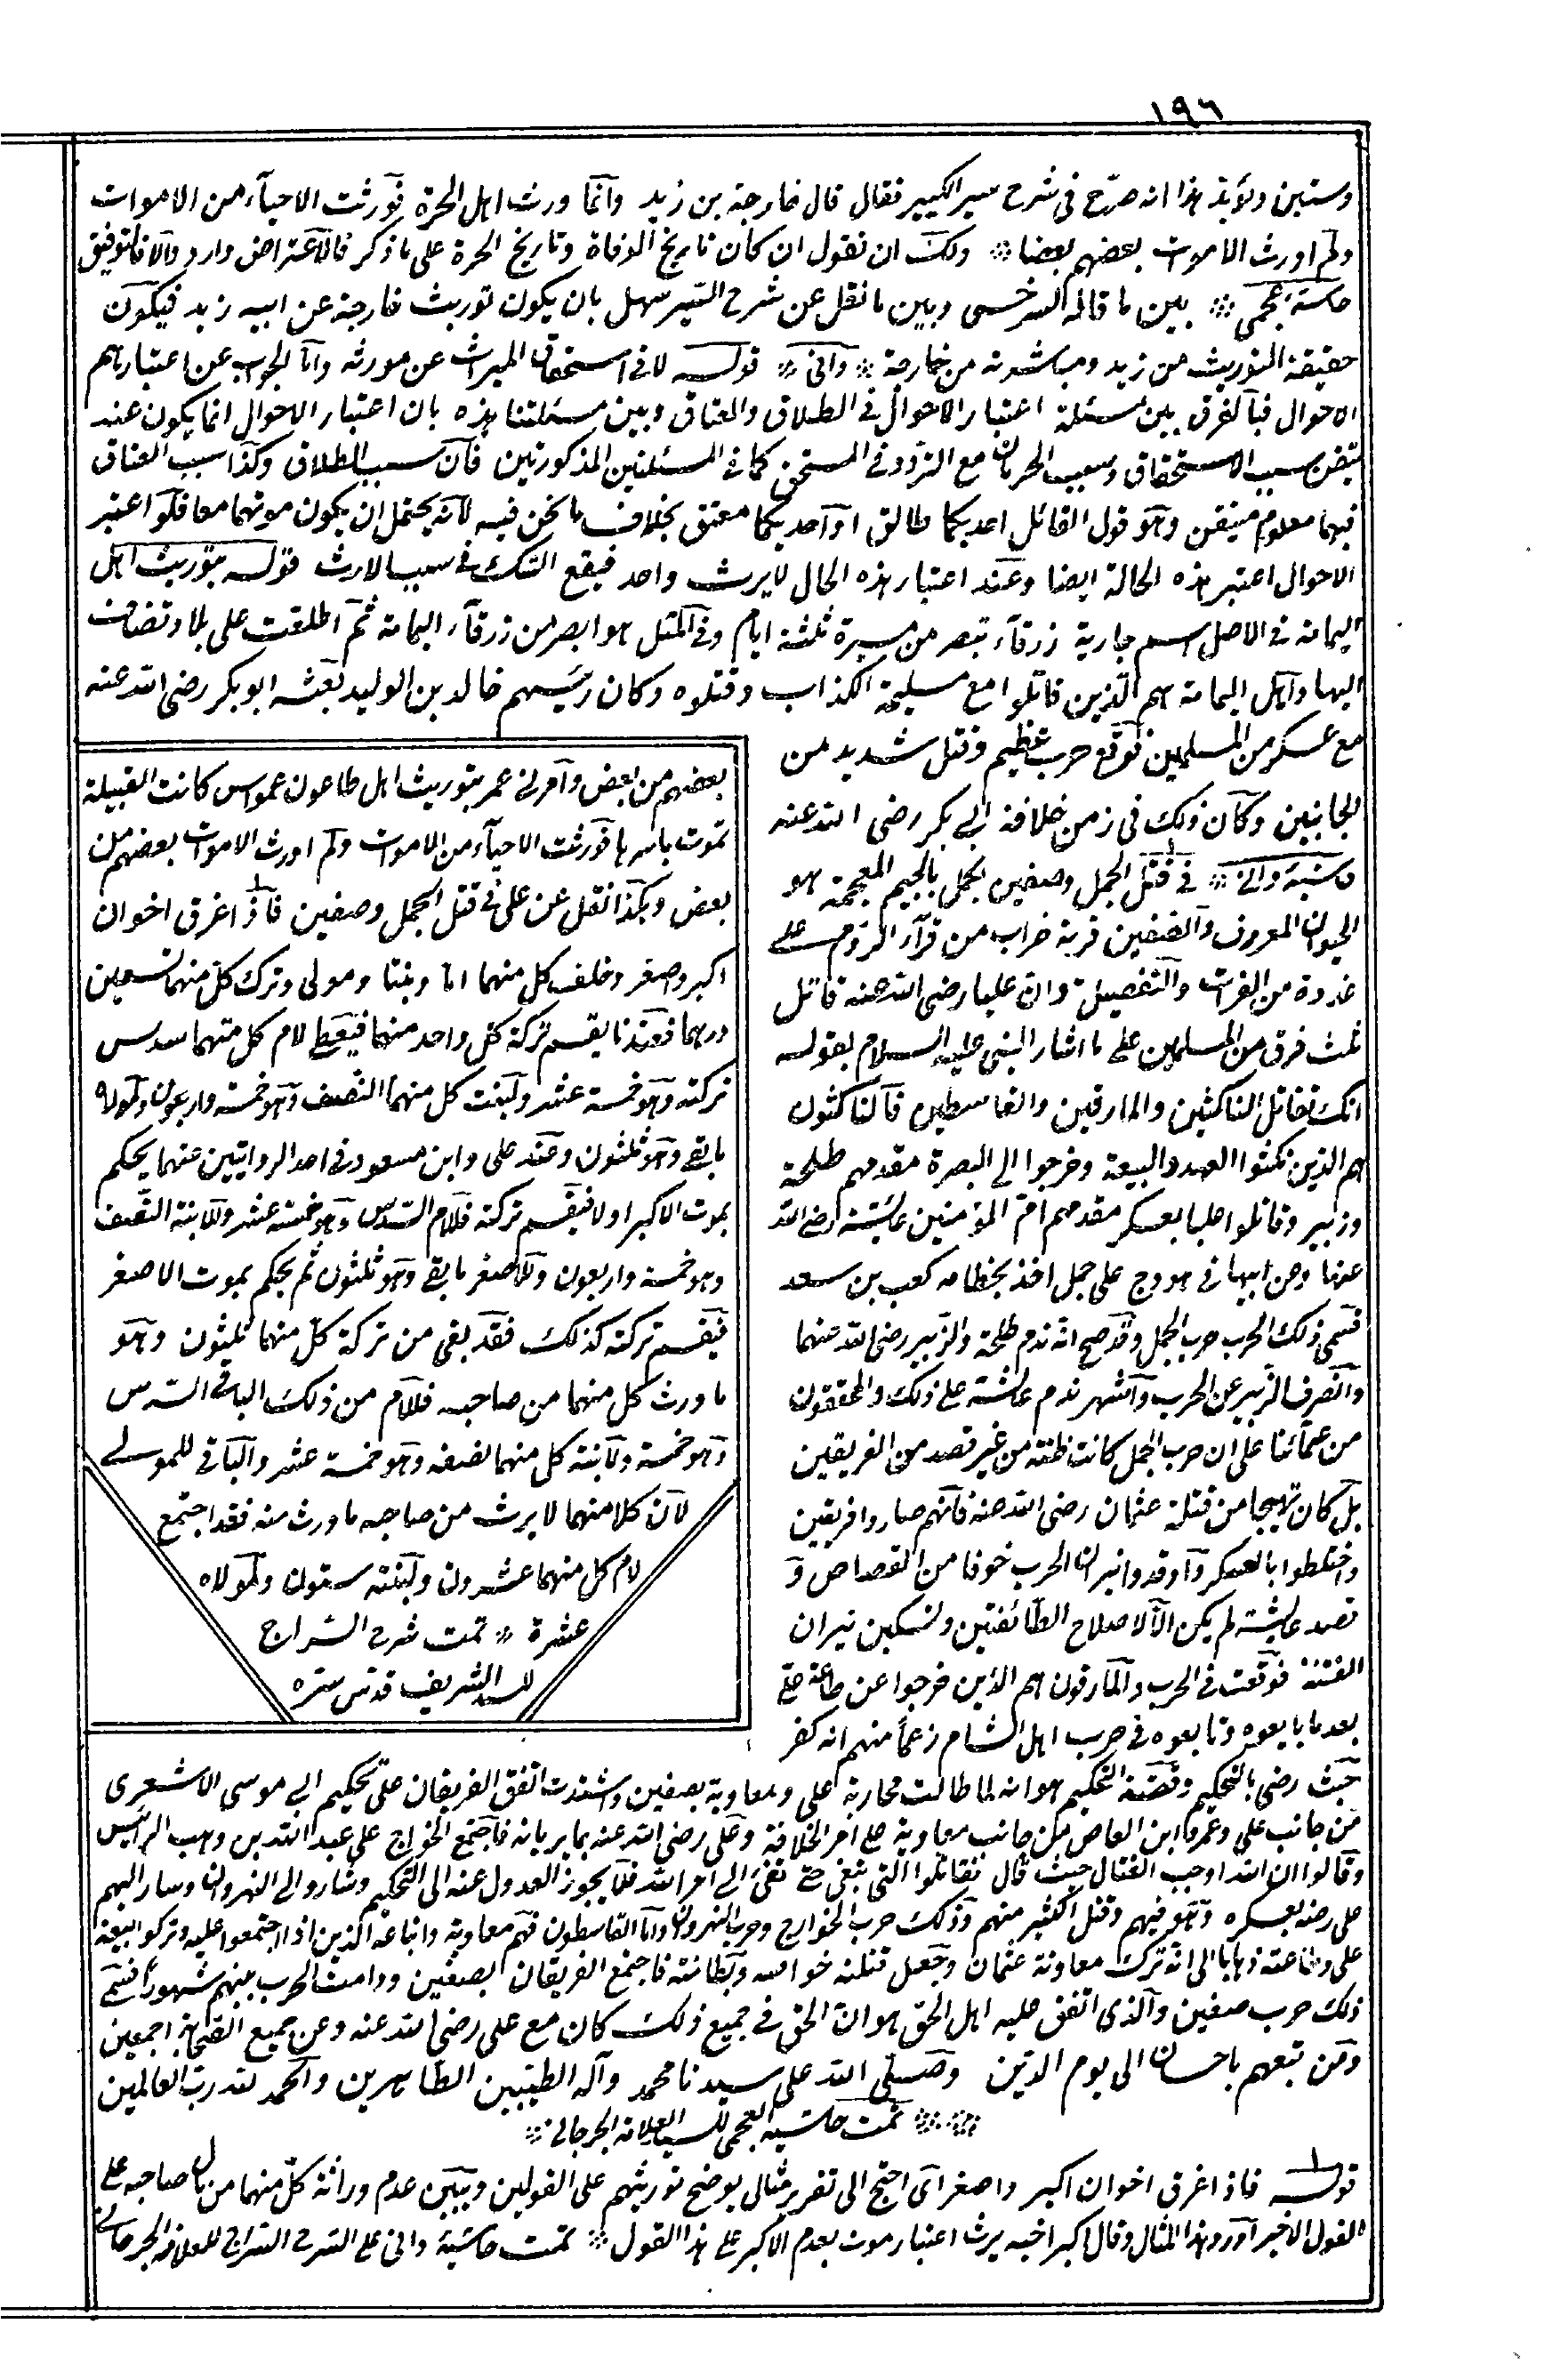 ١٩٦
وستين ويؤيد هذا انه صرّح فى شرح سير الكبير فقال قال خارجة بن زيد وانّما ورث اهل الحرة فورثت الاحيآء من الاموات
ولم اورث الاموات بعضهم بعضا ولك ان تقول ان كان تاريخ الوفاة وتاريخ الحرة على ما ذكر فالاعتراض وارد والا فالتوفيق
حاشية عجمى بين ما قاله السرخسى وبين ما نقل عن شرح السير سهل بان يكون توريث خارجة عن ابيه زيد فيكون
حقيقة التوريث من زيد ومباشرته من خارجة وانى قوله لا فى استحقاق الميراث عن مورثه وامّا الجواب عن اعتبارهم
الاحوال فبالفرق بين مسئلة اعتبار الاحوال فى الطلاق والعتاق وبين مسئلتنا هذه بان اعتبار الاحوال انما يكون عند
تيقن سبب الاستحقاق وسبب الحرمان مع التردد فى المستحق كما فى المسئلتين المذكورتين فان سبب الطلاق وكذا سبب العتاق
فيهما معلوم متيقن وهو قول القائل احديكما طالق او احديكما معتق بخلاف ما نحن فيه لانه يحتمل ان يكون موتهما معا فلو اعتبر
الاحوال اعتبر هذه الحالة ايضا وعند اعتبار هذه الحال لا يرث واحد فيقع الشك فى سبب الارث قوله بتوريث اهل
اليمامة فى الاصل اسم جارية زرقآء تبصر من مسيرة ثلثة ايام وفى المثل هو ابصر من زرقآء اليمامة ثم اطلقت على بلاد تضاف
اليها واهل اليمامة هم الذين قاتلوا مع مسيلمة الكذاب وقتلوه وكان رئيسهم خالد بن الوليد بعثه ابو بكر رضى الله عنه
مع عسكر من المسلمين فوقع حرب عظيم وقتل شديد من
الجانبين وكان ذلك فى زمن خلافة ابى بكر رضى الله عنه
حاشية وانى فى قتل الجمل وصفين الجمل بالجيم المعجمة هو
الحيوان المعروف والصفين قرية خراب من قرآء الروم على
غدوة من الفرات والتفصيل ان عليا رضى الله عنه قاتل
ثلث فرق من المسلمين على ما اشار النبى عليه السلام بقوله
انك تقاتل الناكثين والمارقين والقاسطين فالناكثون
هم الذين نكثوا العهد والبيعة وخرجوا الى البصرة مقدمهم طلحة
وزبير وقاتلوا عليا بعسكر مقدمهم امّ المؤمنين عايشة رضى الله
عنها وعن ابيها فى هودج على جمل اخذ بخطامه كعب بن سعد
فسمى ذلك الحرب حرب الجمل وقد صح انه ندم طلحة والزبير رضى الله عنهما
وانصرف الزبير عن الحرب واشتهر ندم عائشة على ذلك والمحققون
من علمائنا على ان حرب الجمل كانت فلتة من غير قصد من الفريقين
بل كان تهيجا من قتلة عثمان رضى الله عنه فانهم صاروا فريقين
واختلطوا بالعسكر واوقدوا نيران الحرب خوفا من القصاص و
قصد عايشة لم يكن الّا لاصلاح الطائفتين وتسكين نيران
الفتنة فوقعت فى الحرب والمارقون هم الذين خرجوا عن طاعة على
بعد ما بايعوه وتابعوه فى حرب اهل الشام زعمًا منهم انه كفر
حيث رضى بالتحكيم وقضية التحكيم هو انه لما طالت محاربة على ومعاوية بصفين واشتدت اتفق الفريقان على تحكيم ابى موسى الاشعرى
من جانب على وعمرو ابن العاص من جانب معاوية على امر الخلافة وعلى رضى الله عنه بما يريانه فاجتمع الخوارج على عبد الله بن وهب الراسبى
وقالوا ان الله اوجب القتال حيث قال فقاتلوا التى تبغى حتى تفئ الى امر الله فلا يجوز العدول عنه الى التحكيم وساروا الى النهروان وسار اليهم
على رضه بعسكره وهو فيهم وقتل اكثير منهم وذلك حرب الخوارج وحرب النهروان وامّا القاسطون فهم معاوية واتباعه الذين اذا اجتمعوا عليه وتركوا بيعة
على وطاعته ذهابا الى انه ترك معاونة عثمان وجعل قتلته خواصه وبطانته فاجتمع الفريقان بصفين ودامت الحرب بينهم شهورًا فسمّى
ذلك حرب صفين والذى اتفق عليه اهل الحق هو ان الحق فى جميع ذلك كان مع على رضى الله عنه وعن جميع الصحابة اجمعين
ومن تبعهم باحسان الى يوم الدين وصلّى الله على سيدنا محمد وآله الطيبين الطاهرين والحمد لله رب العالمين
تمت حاشية العجمى للسيد العلامة الجرجانى
قوله فاذا غرق اخوان اكبر واصغر اى احتج الى تقرير مثال يوضح توريثهم على القولين ويبين عدم وراثة كلّ منهما من مال صاحبه على
القول الاخير اورد هذا المثال وقال اكبر اخيه يرث اعتبار موت بعدم الاكبر على هذا القول تمت حاشية وانى على الشرح السراجى للعلامة الجرجانى
بعضهم من بعض وامرنى عمر بتوريث اهل طاعون عمواس كانت القبيلة
تموت باسرها فورثت الاحيآء من الاموات ولم اورث الاموات بعضهم من
بعض وهكذا نقل عن على فى قتل الجمل وصفين فاذا غرق اخوان
اكبر واصغر وخلف كل منهما امّا وبنتا ومولى وترك كلّ منهما تسعين
درهما فعندنا يقسم تركة كل واحد منهما فيعطى لام كل منهما سدس
تركته وهو خمسة عشر ولبنت كل منهما النصف وهو خمسة واربعون ولمولاه
ما بقى وهو ثلثون وعند على وابن مسعود فى احد الروايتين عنهما يحكم
بموت الاكبر اولا فيقسم تركته فللام السدس وهو خمسة عشر وللابنة النصف
وهو خمسة واربعون وللاصغر ما بقى وهو ثلثون ثم يحكم بموت الاصغر
فيقسم تركته كذلك فقد بقى من تركة كلّ منهما ثلثون وهو
ما ورث كل منهما من صاحبه فللام من ذلك الباقى السدس
وهو خمسة ولابنة كل منهما نصفه وهو خمسة عشر والباقى للمولى
لان كلا منهما لا يرث من صاحبه ما ورث منه فقد اجتمع
لام كل منهما عشرون ولبنته ستون ولمولاه
عشرة تمت شرح السراج
للسيد الشريف قدّس سرّه